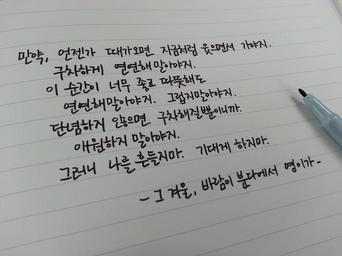 만약, 언젠가 때가오면 지금처럼 웃으면서 가야지.
구차하게 연연해말아야지.
이 순간이 너무 좋고 따뜻해도
연연해말아야지. 그립지말아야지.
단념하지 않으면 구차해질뿐이니까.
애원하지 말아야지.
그러니 나를 흔들지마. 기대게 하지마.
- 그 겨울, 바람이 분다에서 영이가 -